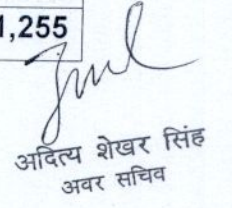 1,255
अदित्य शेखर सिंह
अवर सचिव